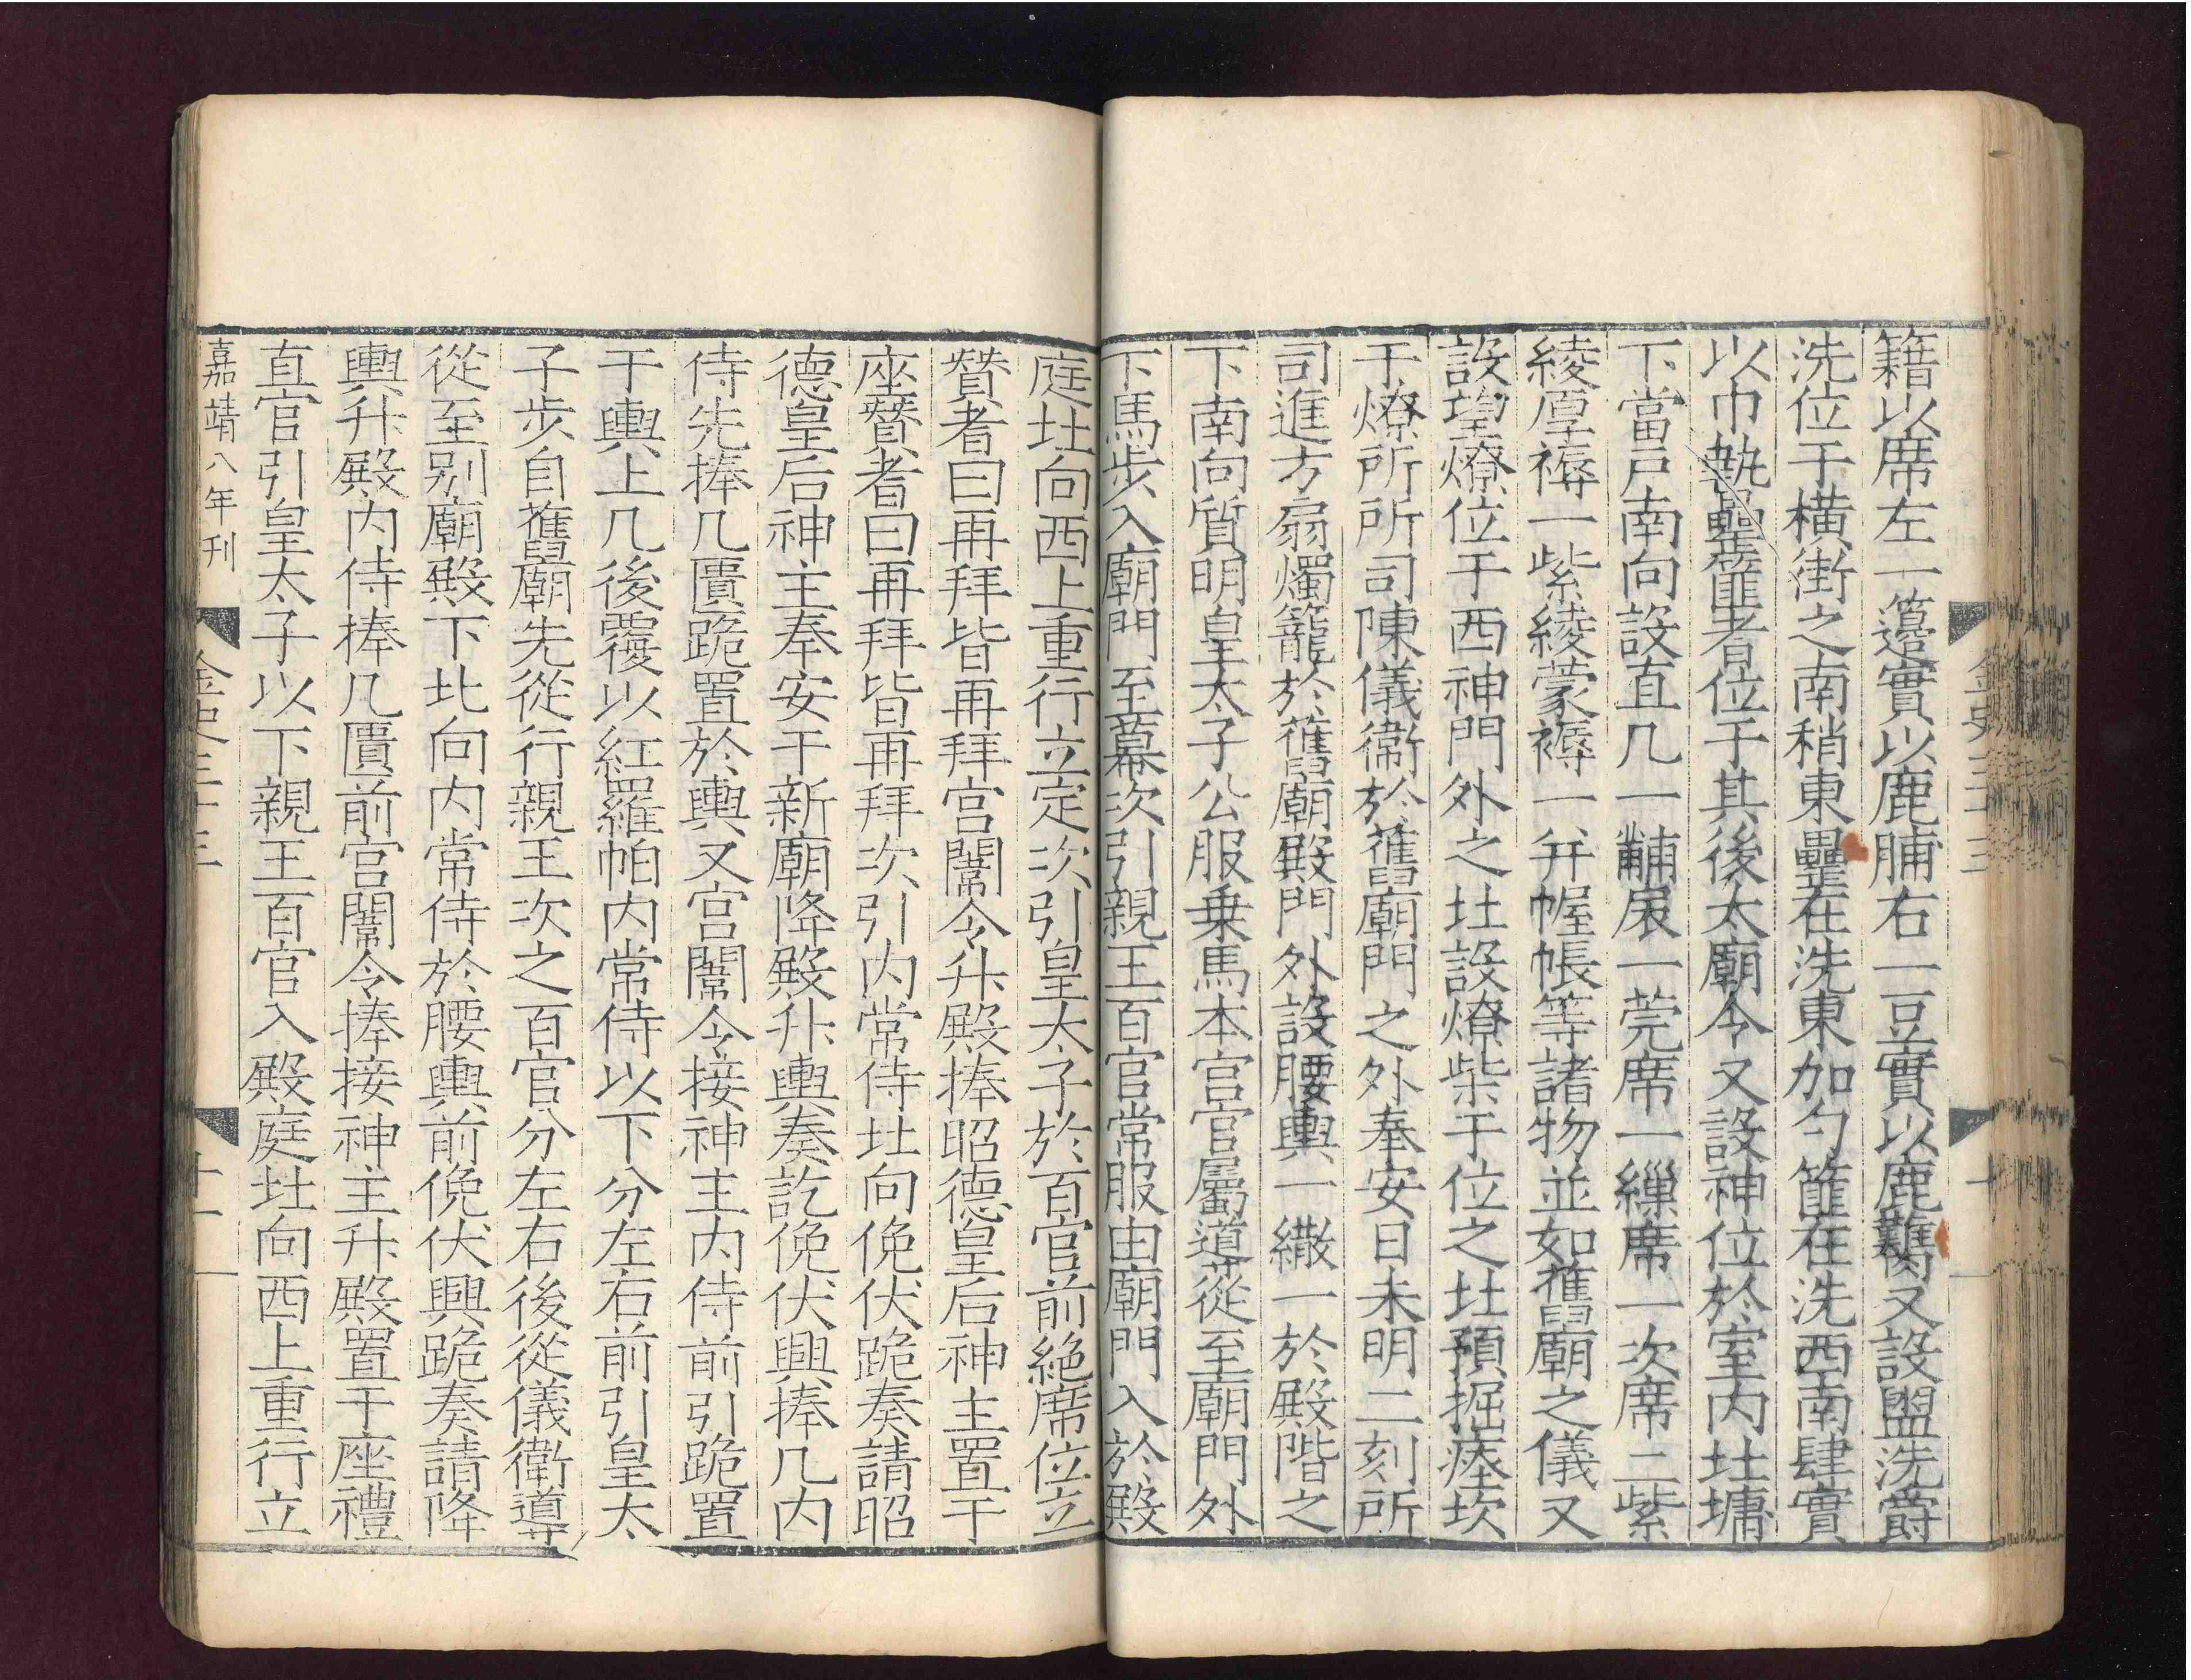 籍以席左一籩實以鹿脯右一豆實以鹿臡又設盥洗爵
洗位于橫街之南稍東罍在洗東加勺篚在洗西南肆實
以巾執罍篚者位于其後太廟令又設神位於室內北墉
下當戶南向設直几一黼扆一莞席一繅席一次席二紫
綾厚褥一紫綾蒙褥一并幄帳等諸物並如舊廟之儀又
設望燎位于西神門外之北設燎柴于位之北預掘瘞坎
于燎所所司陳儀衞於舊廟門之外奉安日未明二刻所
司進方扇燭籠於舊廟殿門外設腰輿一繖一於殿階之
下南向質明皇太子公服乗馬本宮官屬導從至廟門外
下馬步入廟門至幕次引親王百官常服由廟門入於殿
金史三十三
十
庭北向西上重行立定次引皇太子於百官前絶席位立
贊者曰再拜皆再拜宮闈令升殿捧昭德皇后神主置于
座贊者曰再拜皆再拜次引內常侍北向俛伏跪奏請昭
德皇后神主奉安于新廟降殿升輿奏訖俛伏興捧几內
侍先捧几匱跪置於輿又宮闈令接神主內侍前引跪置
于輿上几後覆以紅羅帕內常侍以下分左右前引皇太
子步自舊廟先從行親王次之百官分左右後從儀衛導
從至别廟殿下北向內常侍於腰輿前俛伏興跪奏請降
輿升殿內侍捧几匱前宮闈令捧接神主升殿置于座禮
直官引皇太子以下親王百官入殿庭北向西上重行立
嘉靖八年刊
金史三十三
十一